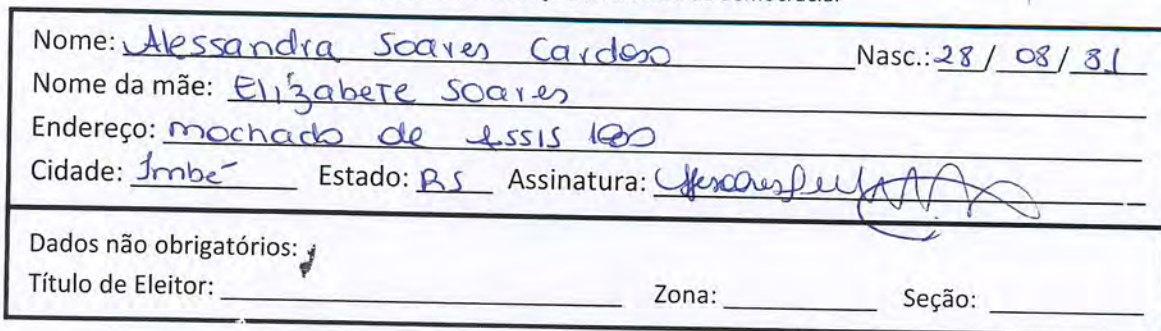 Nome: Alessandra Soares Cardoso Nasc.: 28 / 08 / 81
Nome da mãe: Elizabete Soares
Endereço: machado de Assis 180
Cidade: Imbé Estado: RS Assinatura:
Dados não obrigatórios:
Título de Eleitor: Zona: Seção: